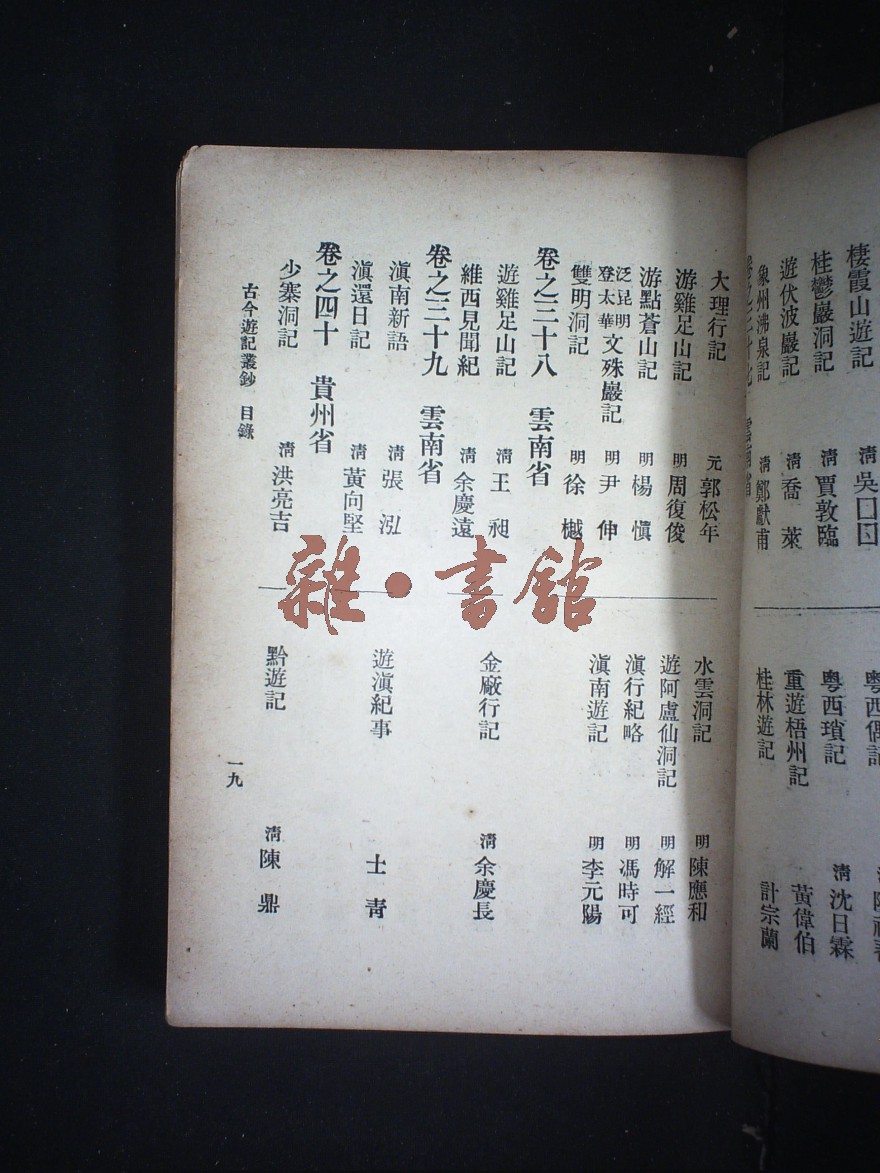 棲霞山遊記 清 吳□□
桂鬱巖洞記 清 賈敦臨
遊伏波巖記 清 喬萊
象州沸泉記 清 鄭獻甫
粵西偶記
粵西瑣記 清 沈日霖
重遊梧州記 黃偉伯
桂林遊記 計宗蘭
卷之三十七 雲南省
大理行記 元 郭松年
游雞足山記 明 周復俊
游點蒼山記 明 楊慎
泛昆明登太華文殊巖記 明 尹伸
雙明洞記 明 徐樾
水雲洞記 明 陳應和
遊阿盧仙洞記 明 解一經
滇行紀略 明 馮時可
滇南遊記 明 李元陽
卷之三十八 雲南省
遊雞足山記 清 王昶
維西見聞紀 清 余慶遠
金廠行記 清 余慶長
卷之三十九 雲南省
滇南新語 清 張泓
滇還日記 清 黃向堅
遊滇紀事 士青
卷之四十 貴州省
少寨洞記 清 洪亮吉
黔遊記 清 陳鼎
古今遊記叢鈔 目錄
一九
雜·書館